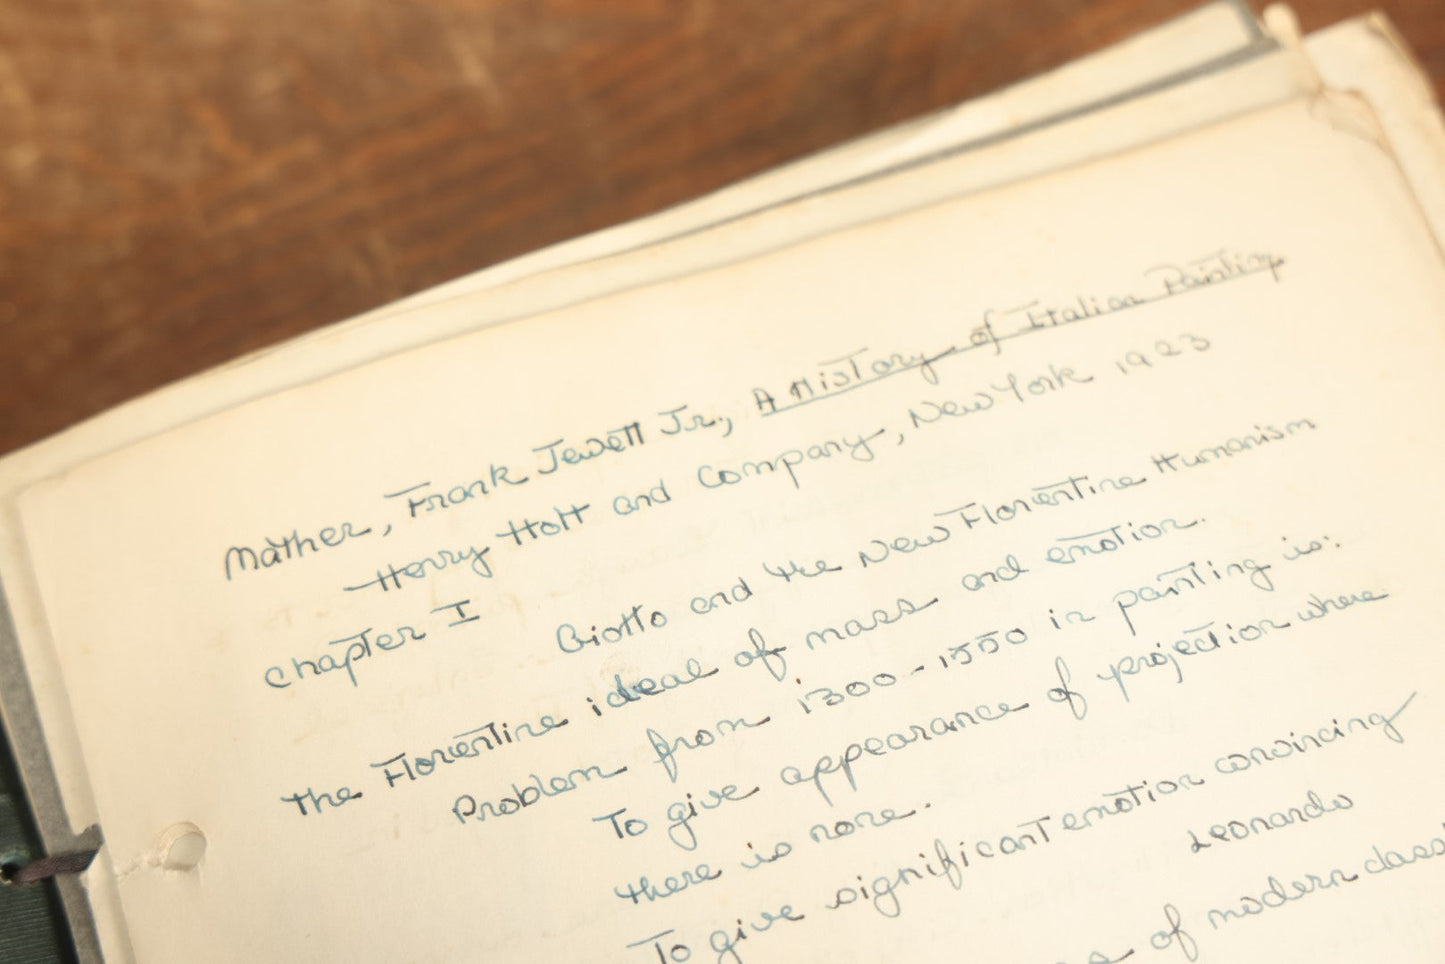 Mather, Frank Jewett Jr., A History of Italian Painting
Henry Holt and Company, New York 1923
Chapter I
Giotto and the New Florentine Humanism
The Florentine ideal of mass and emotion.
Problem from 1300-1550 in painting is:
To give appearance of projection where
there is none.
To give significant emotion convincing
Leonardo
of modern